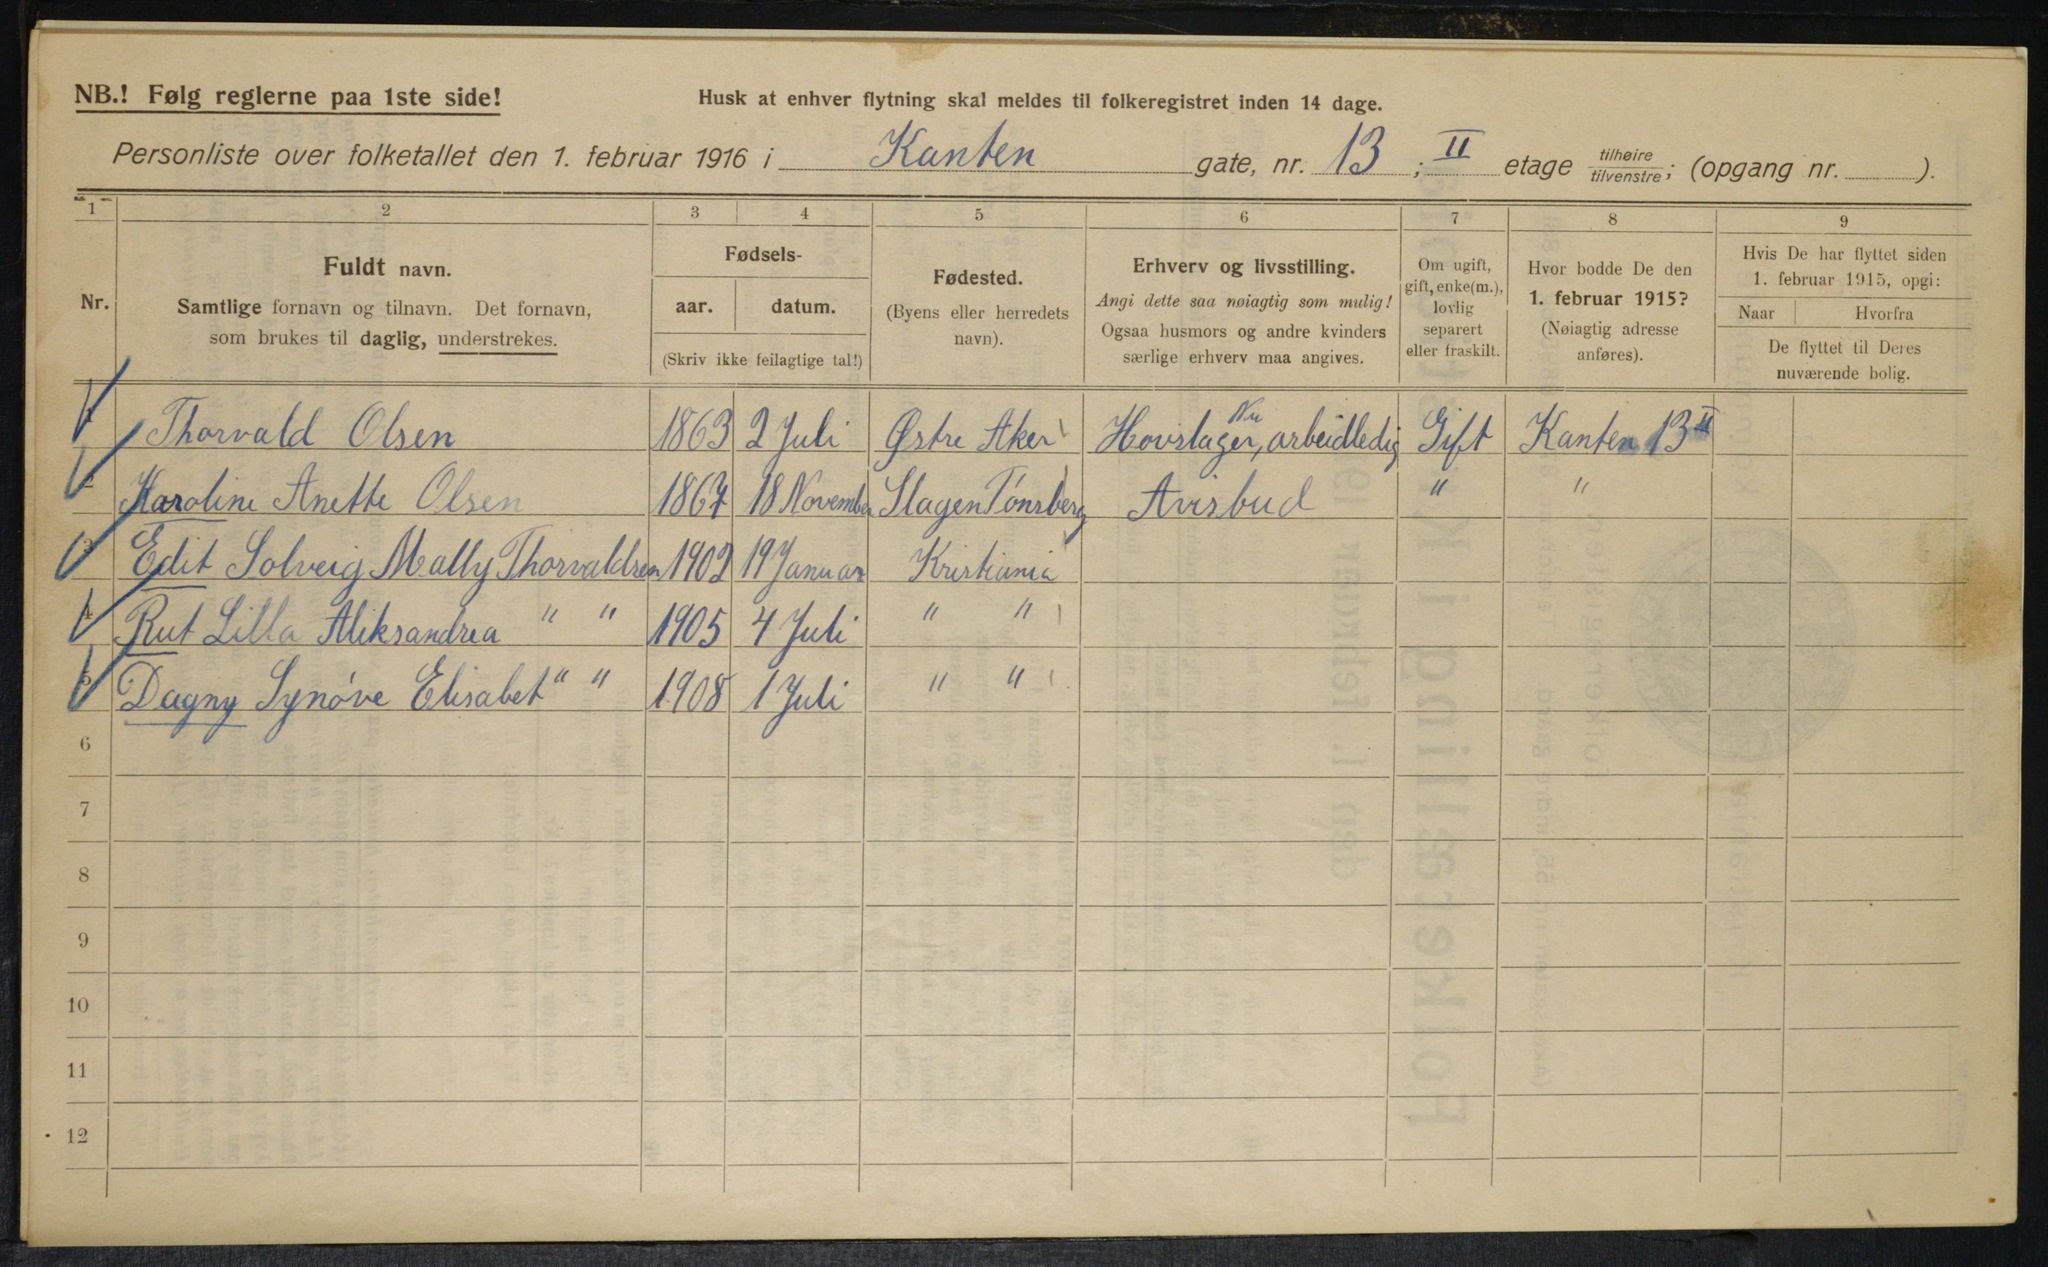 NB.! Følg reglerne paa 1ste side!
Husk at enhver flytning skal meldes til folkeregistret inden 14 dage.
Personliste over folketallet den 1. februar 1916 i Kanten gate, nr. 13 ; II etage tilhøire tilvenstre ; (opgang nr. ).
1 2 3 4 5 6 7 8 9
Nr.
Fuldt navn.
Samtlige fornavn og tilnavn. Det fornavn,
som brukes til daglig, understrekes.
Fødsels-
aar. datum.
(Skriv ikke feilagtige tal!)
Fødested.
(Byens eller herredets
navn).
Erhverv og livsstilling.
Angi dette saa nøiagtig som mulig!
Ogsaa husmors og andre kvinders
særlige erhverv maa angives.
Om ugift,
gift, enke(m.),
lovlig
separert
eller fraskilt.
Hvor bodde De den
1. februar 1915?
(Nøiagtig adresse
anføres).
Hvis De har flyttet siden
1. februar 1915, opgi:
Naar Hvorfra
De flyttet til Deres
nuværende bolig.
1 Thorvald Olsen 1863 2 Juli Østre Aker Hovslager, Nu arbeidledig Gift Kanten 13 II
2 Karoline Anette Olsen 1867 18 November Slagen Tønsberg Avisbud " "
3 Edit Solveig Mally Thorvaldsen 1902 19 Januar Kristiania
4 Rut Lilla Aliksandrea " " 1905 4 Juli " "
5 Dagny Synøve Elisabet " " 1908 1 Juli " "
6
7
8
9
10
11
12